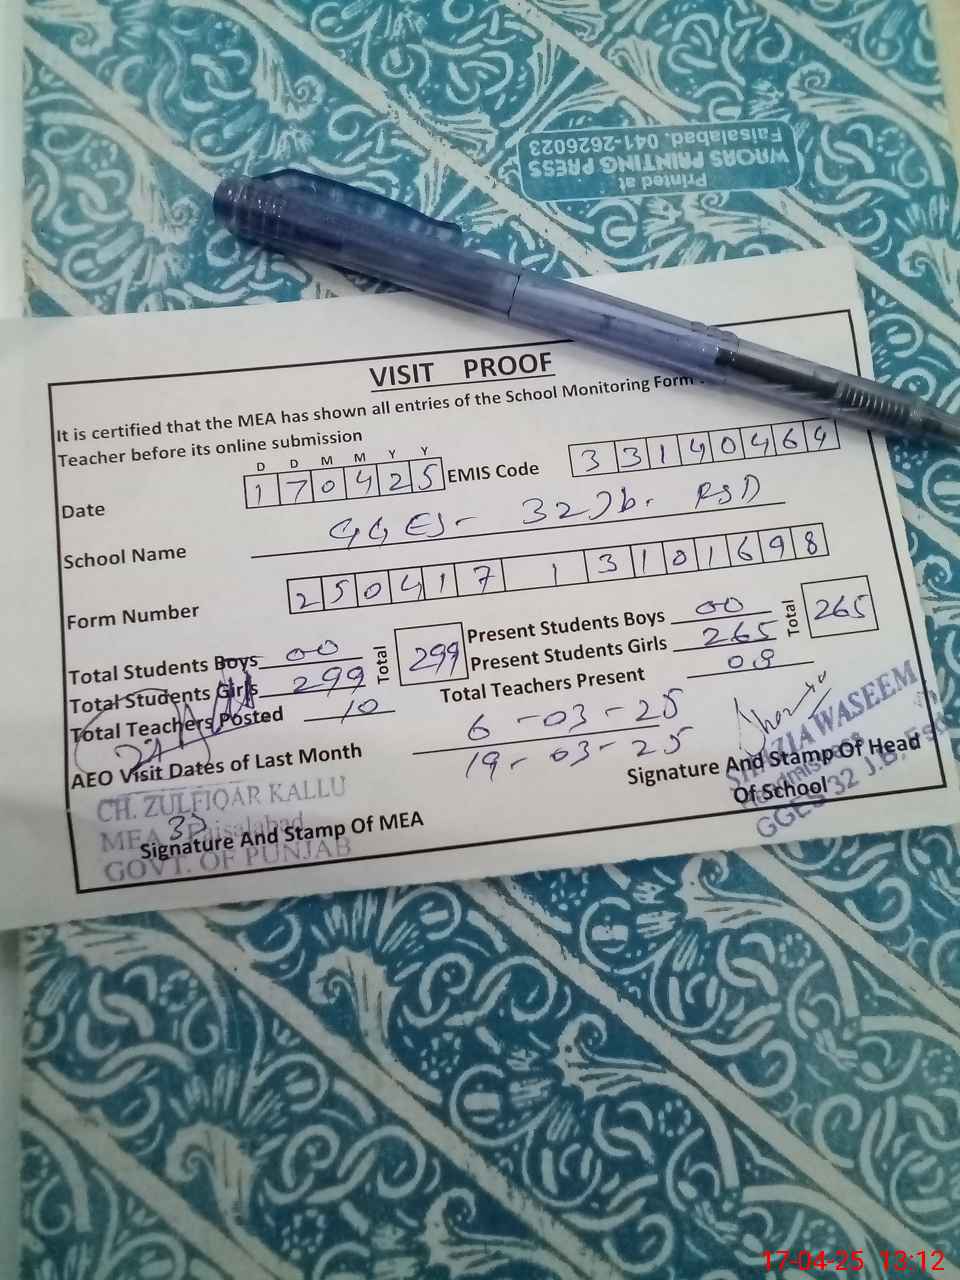 Printed at
WAQAS PRINTING PRESS
Faisalabad. 041-2626023
VISIT PROOF
It is certified that the MEA has shown all entries of the School Monitoring Form
Teacher before its online submission
D D M M Y Y
Date 1 7 0 4 2 5 EMIS Code 3 3 1 4 0 4 6 4
School Name GGES- 32 Jb. FSD
Form Number 2 5 0 4 1 7 1 3 1 0 1 6 9 8
Total Students Boys 00 Total 299 Present Students Boys 00 Total 265
Total Students Girls 299 Present Students Girls 265
Total Teachers Posted 10 Total Teachers Present 08
AEO Visit Dates of Last Month 6-03-25
19-03-25
CH. ZULFIQAR KALLU
MEA 33 Faisalabad
GOVT. OF PUNJAB
Signature And Stamp Of MEA
SHAZIA WASEEM
Headmistress
GGES 32 J.B, FSD
Signature And Stamp Of Head
Of School
17-04-25 13:12